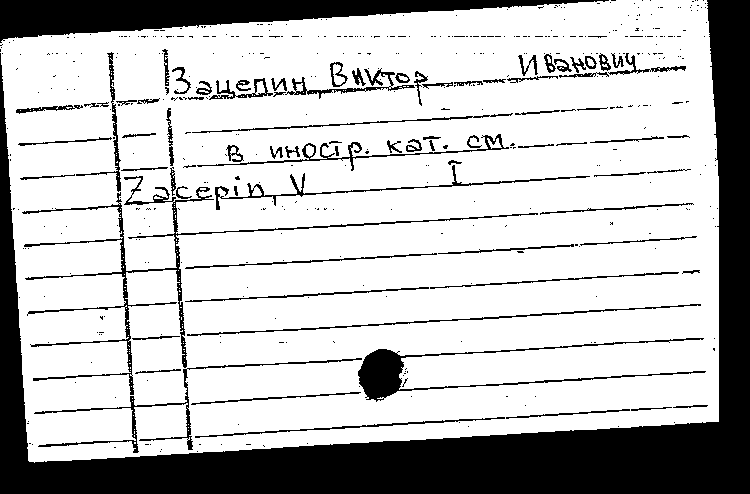 Зацепин, Виктор Иванович
в иностр. кат. см.
Zacepin, V I